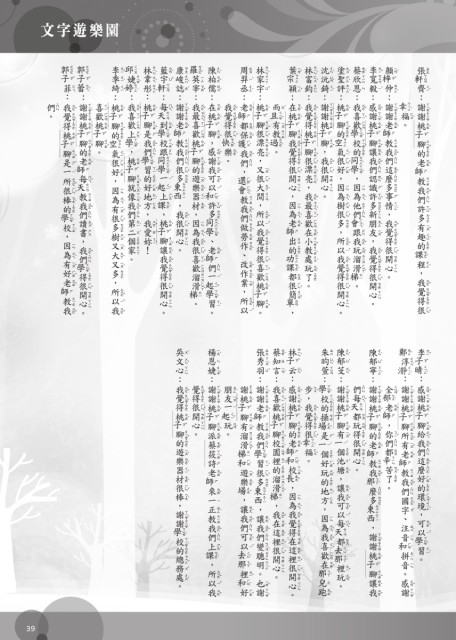 文字遊樂園
張軒齊：謝謝桃子腳的老師教我們許多有趣的課程，我覺得很
幸福。
顏梓伃：謝謝老師教我們這麼多事情，我覺得很開心。
李寬毅：感謝桃子腳讓我們認識許多新朋友，我覺得很開心。
蔡欣恩：我喜歡學校的同學，因為他們會跟我玩溜滑梯。
塗聖評：桃子腳的空氣很好，因為樹很多，所以我覺得很開心。
沈沅錡：謝謝桃子腳，我很開心。
林富鈞：我覺得桃子腳很漂亮，我最喜歡在小教室玩了。
葉宗穎：在桃子腳我覺得很開心，因為老師出的功課都很簡單，
而且有教過。
林家宇：桃子腳很漂亮，又很大間，所以我覺得很喜歡桃子腳。
周羿丞：老師都保護我們，還會教我們做勞作、改作業，所以
我覺得很快樂。
陳柏儒：在桃子腳，感謝我可以和許多同學、老師們一起學習。
羅英寧：我最喜歡桃子腳的遊樂器材，因為我很喜歡溜滑梯。
康峻誌：謝謝老師教我們很多東西，我很開心。
藍宇軒：每天到學校跟同學一起上課，桃子腳讓我覺得很開心。
林韋彤：桃子腳是我們學習的好地方，我愛妳！
邱婕婷：我喜歡上學，桃子腳就像我們第二個家。
李季綺：桃子腳的空氣很好，因為有很多樹又大又多，所以我
喜歡桃子腳。
郭子菲：我覺得桃子腳是一所很棒的學校，因為有好老師教我
們。
李子晴：感謝桃子腳給我們這麼好的環境，可以學習。
鄭淳澼：謝謝桃子腳所有老師教我們國字、注音和拼音，感謝
全部老師，你們都辛苦了。
陳郁寧：謝謝桃子腳的老師教我那麼多東西，謝謝桃子腳讓我
們每天都玩得很開心。
陳郁芠：謝謝桃子腳有一個池塘，讓我可以每天都去那裡玩。
朱昀萱：學校的操場是一個好玩的地方，因為我喜歡在那兒跑
步，我覺得很幸福。
林子云：感謝桃子腳的老師和校長，因為我覺得在這裡很開心。
蔡知言：我喜歡桃子腳校園裡的溜滑梯，我在這裡很開心。
張秀羽：謝謝老師教我們學習很多東西，讓我們變聰明。也謝
謝桃子腳有溜滑梯和遊樂場，讓我們可以去那裡和好
朋友一起玩。
楊恩婕：謝謝桃子腳派蔡筱詩老師來一正教我們上課，所以我
覺得很開心。
吳文心：我覺得桃子腳的遊樂器材很棒，謝謝學校的總務處。
39